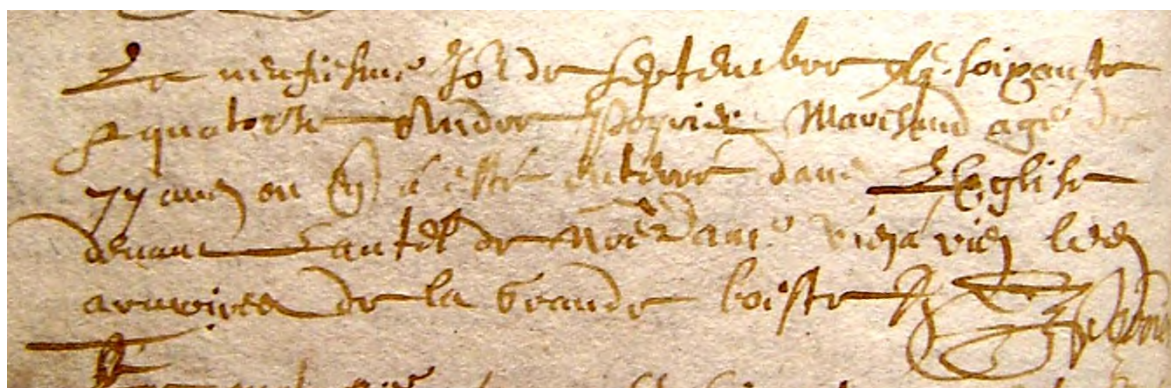 Le neufiesme Jor de septembre gbc. soixante
& quatorze Andre Marchand agé de
77 ans ou en a esté enterré dans L'Eglise
devant L'autel de nre Dame vis a vis les
armoires de la Grande boeste